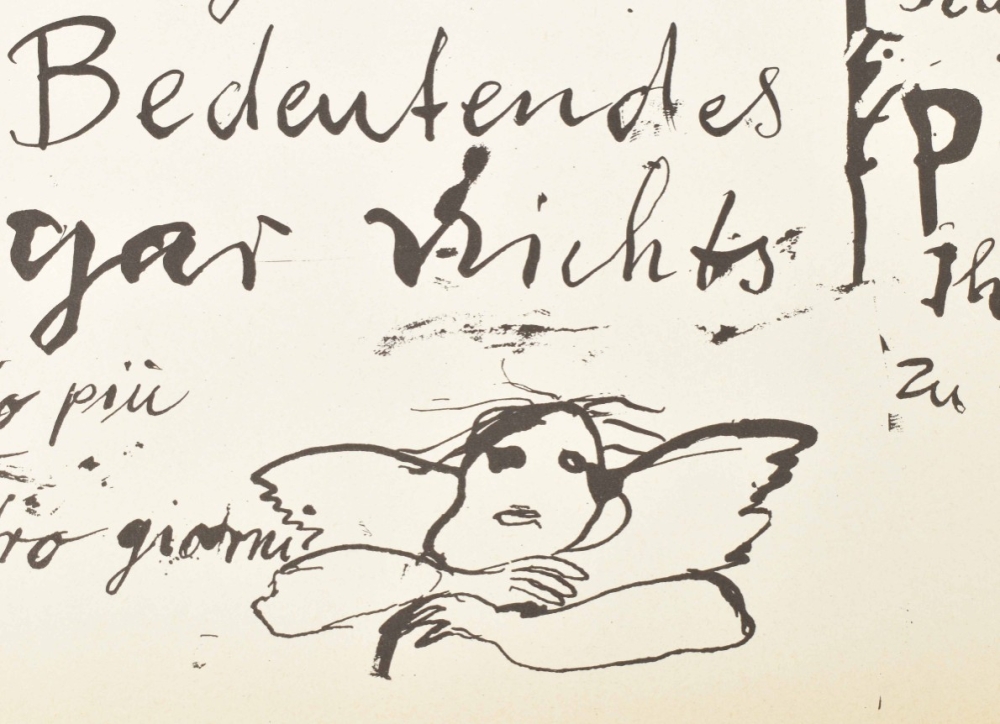 Bedeutendes
gar nichts
più
giorni
P
Ih
zu